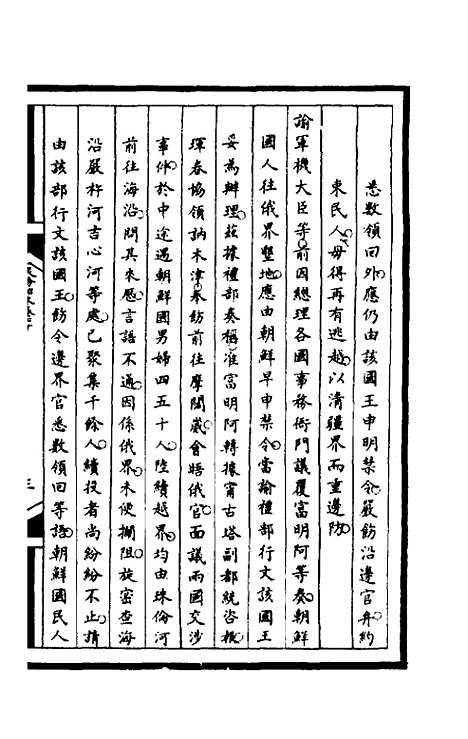 悉數領回外。應仍由該國王申明禁令。嚴飭沿邊官弁約
束民人。毋得再有逃越。以清疆界而重邊防。
諭軍機大臣等。前因總理各國事務衙門議覆富明阿等奏。朝鮮
國人往俄界墾地。應由朝鮮早申禁令。當諭禮部行文該國王
妥為辦理。茲據禮部奏稱。准富明阿轉據甯古塔副都統咨報。
琿春協領訥木津。奉飭前往摩闊崴會晤俄官。面議兩國交涉
事件。於中途遇朝鮮國男婦四五十人。陸續越界。均由珠倫河
前往海沿。問其來歷。言語不通。因係俄界。未便攔阻。旋密查海
沿嚴杵河吉心河等處。已聚集千餘人。續投者尚紛紛不止。請
由該部行文該國王。飭令邊界官悉數領回等語。朝鮮國民人
三